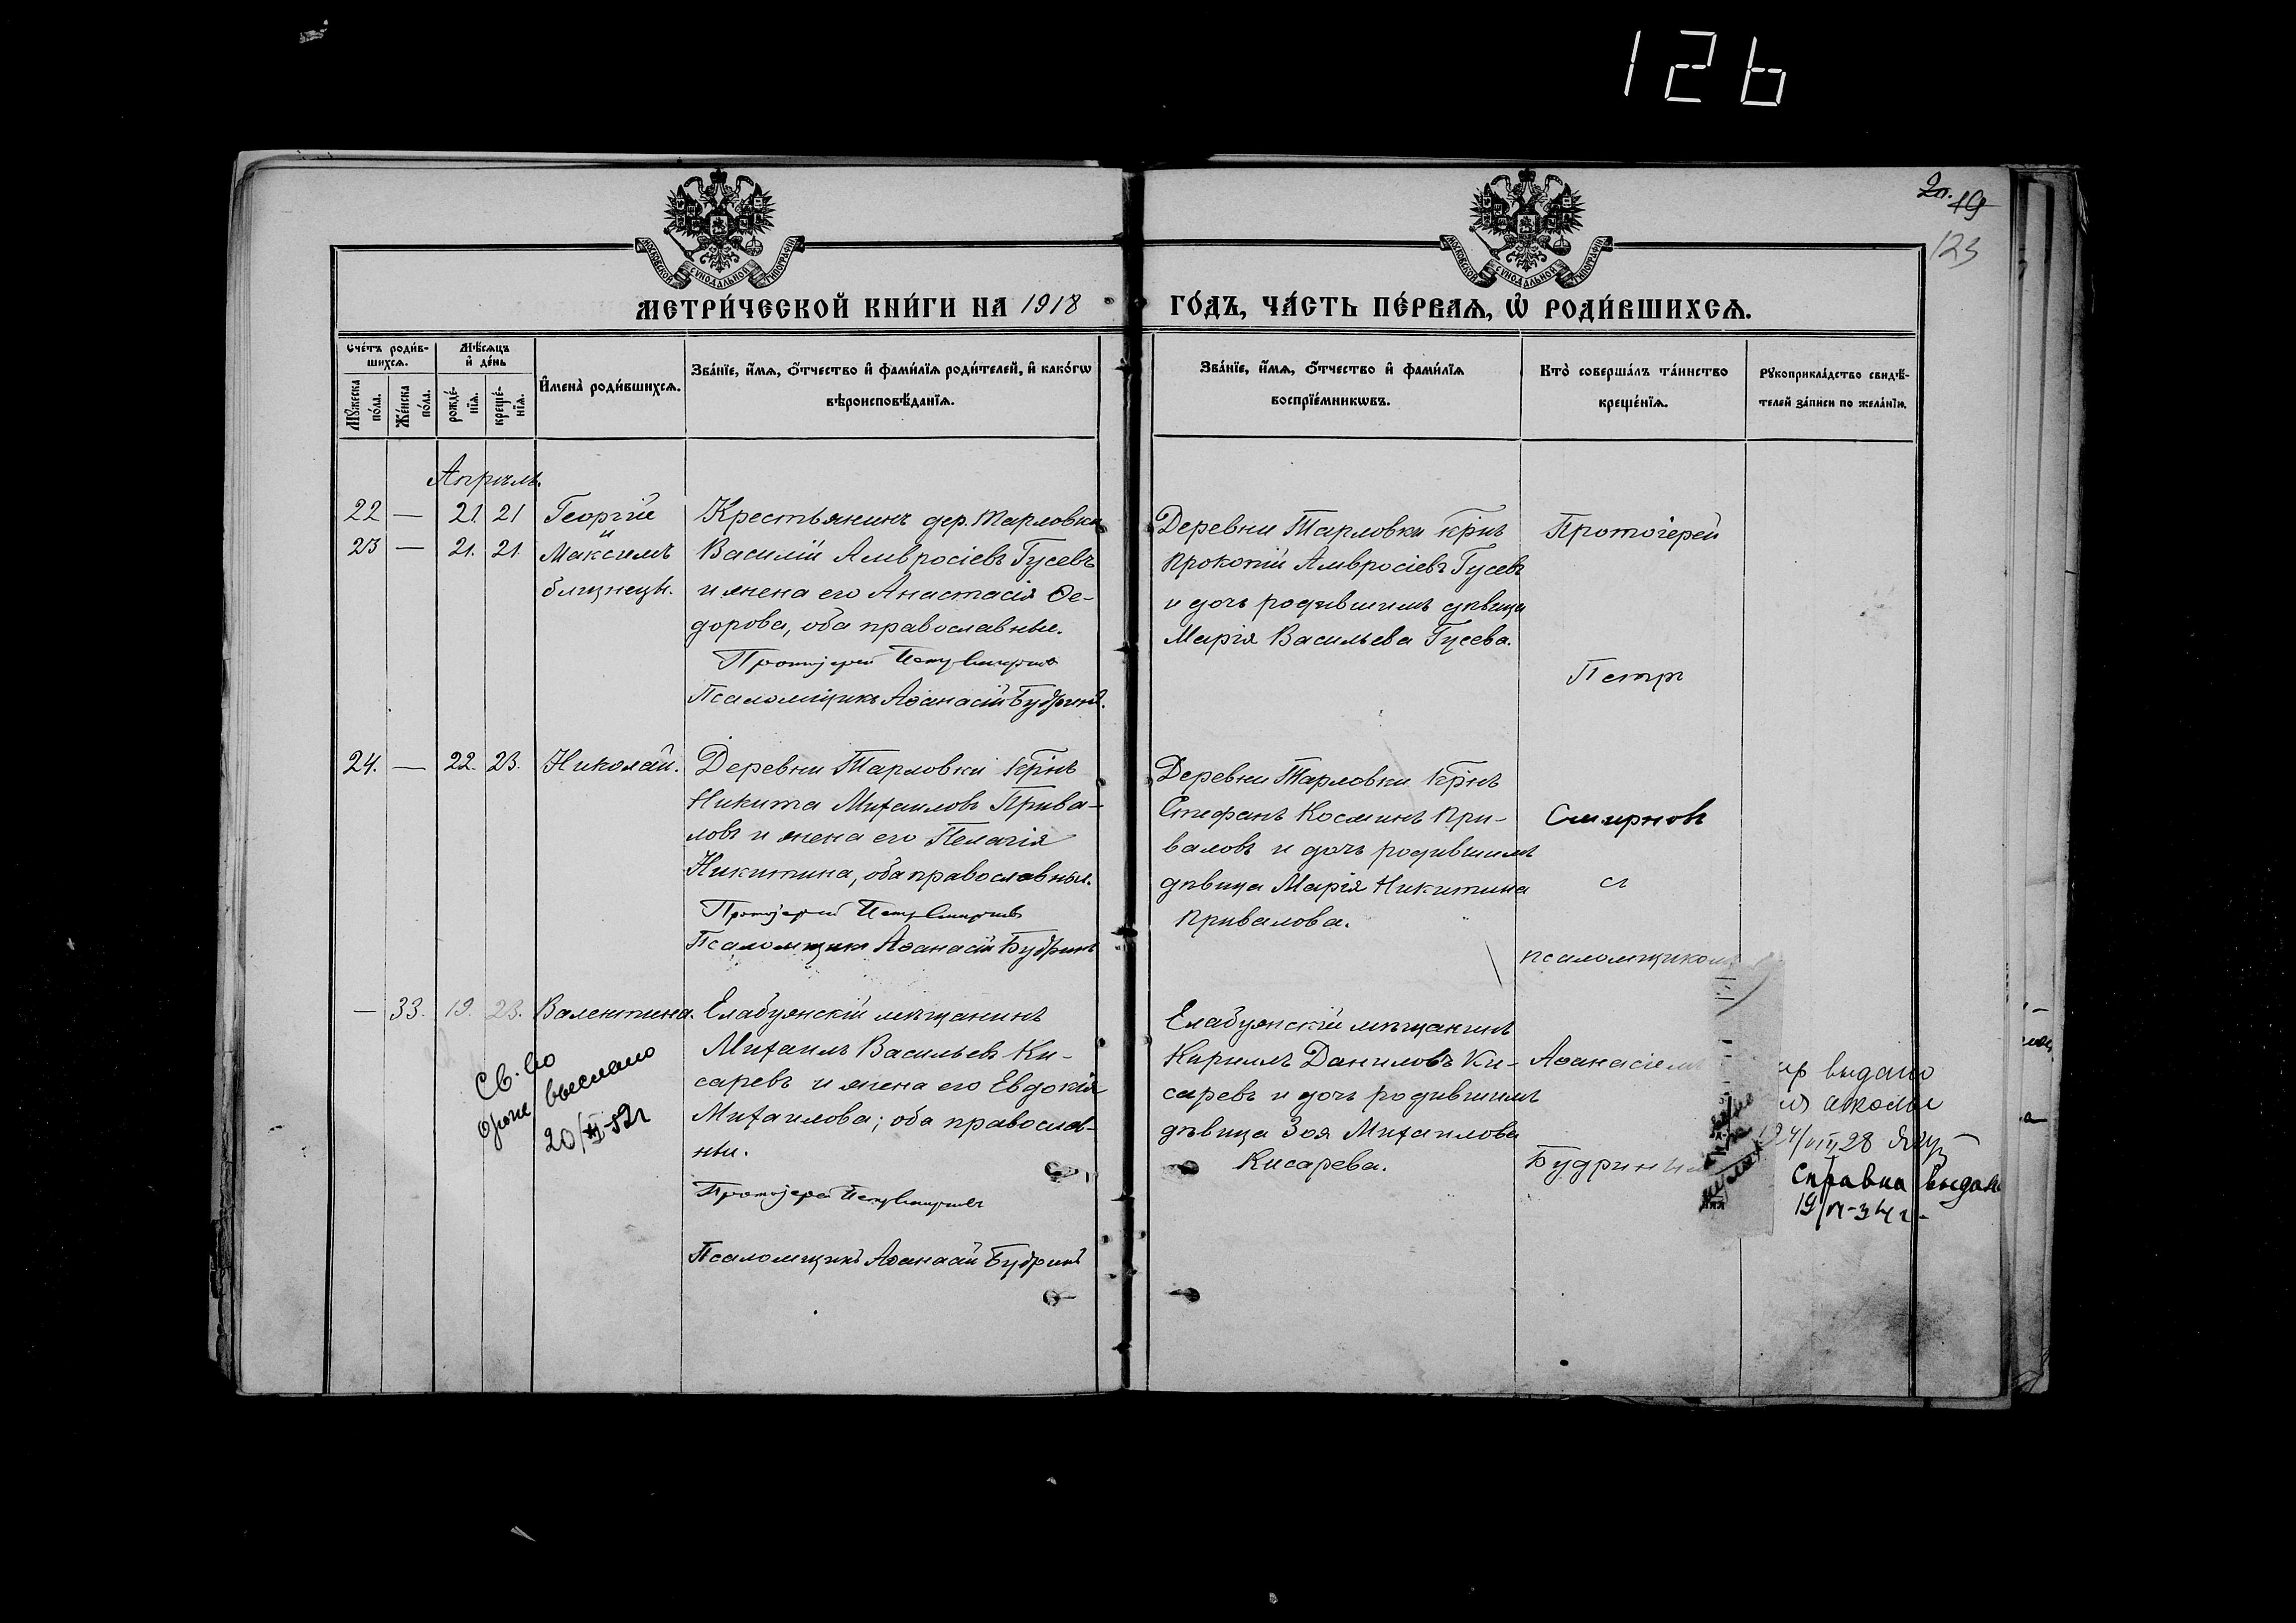 126
20. 19
123
МОСКОВСКОЙ СѴНОДАЛЬНОЙ ТИПОГРАФІИ
МОСКОВСКОЙ СѴНОДАЛЬНОЙ ТИПОГРАФІИ
МЕТРИ́ЧЕСКОЙ КНИ́ГИ НА 1918 ГО́ДЪ, ЧА́СТЬ ПЕ́РВАѦ, Ѡ҆ РОДИ́ВШИХСѦ.
Сче́тъ роди́в-
шихсѧ.
Мѣ́сѧцъ
и҆ де́нь
Мꙋ́жеска
по́ла.
Же́нска
по́ла.
рожде́-
нїѧ.
креще́-
нїѧ.
И҆мена̀ роди́вшихсѧ.
Зва́нїе, и҆́мѧ, ѻ҆́тчество и҆ фами́лїѧ роди́телей, и҆ како́гѡ
вѣроисповѣ́данїѧ.
Зва́нїе, и҆́мѧ, ѻ҆́тчество и҆ фами́лїѧ
воспрїе́мникѡвъ.
Кто̀ соверша́лъ та́инство
креще́нїѧ.
Рꙋкоприкла́дство свидѣ́-
телей за́писи по жела́нїю.
Апрѣль.
22 — 21 21 Георгій
и
23 — 21. 21. Максимъ
близнецы.
Крестьянинъ дер. Тарловки
Василій Амвросіевъ Гусевъ
и жена его Анастасія Ѳе-
дорова, оба православные.
Протоіерей Петръ Смирновъ
Псаломщикъ Аѳанасій Будринъ.
Деревни Тарловки кр̃нъ
Прокопій Амвросіевъ Гусевъ
и дочь родившимъ дѣвица
Марія Васильева Гусева.
Протоіерей
Петръ
24. — 22. 23. Николай.
Деревни Тарловки кр̃нъ
Никита Михаиловъ Прива-
ловъ и жена его Пелагія
Никитина, оба православные.
Протоіерей Петръ Смирновъ
Псаломщикъ Аѳанасій Будринъ
Деревни Тарловки кр̃нъ
Стефанъ Косминъ При-
валовъ и дочь родившимъ
дѣвица Марія Никитина
Привалова.
Смирновъ
съ
псаломщиком
— 33. 19. 23. Валентина.
Елабужскій мѣщанинъ
Михаилъ Васильевъ Ки-
саревъ и жена его Евдокія
Михаилова; оба православ-
ные.
Протоіерей Петръ Смирновъ
Псаломщикъ Аѳанасій Будринъ
Елабужскій мѣщанинъ
Кириллъ Даниловъ Ки-
саревъ и дочь родившимъ
дѣвица Зоя Михаилова
Кисарева.
Аѳанасіемъ
Будринымъ
Св. во
выслано
20/XII-52г
выдано
школы
24/VIII 28
Справка выдана
19/VI-34г.